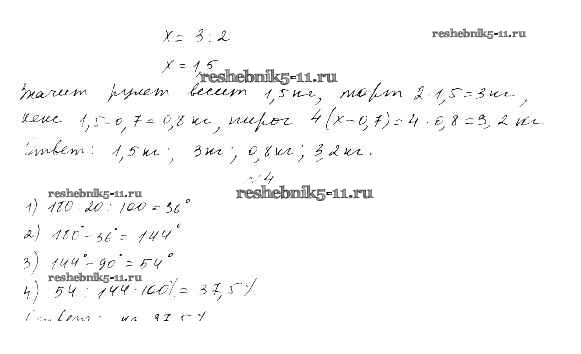 x = 3 : 2
reshebnik5-11.ru
x = 1,5
reshebnik5-11.ru
Значит рулет весит 1,5 кг, торт 2·1,5 = 3 кг,
кекс 1,5 - 0,7 = 0,8 кг, пирог 4(x - 0,7) = 4·0,8 = 3,2 кг
Ответ: 1,5 кг; 3 кг; 0,8 кг; 3,2 кг.
№4
reshebnik5-11.ru
reshebnik5-11.ru
1) 180·20 : 100 = 36°
2) 180° - 36° = 144°
3) 144° - 90° = 54°
reshebnik5-11.ru
4) 54 : 144·100% = 37,5%
Ответ: на 37,5%